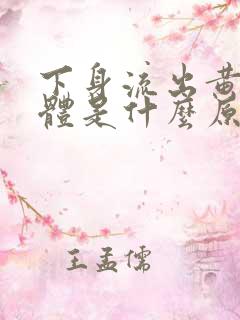 下身流出黄
體是什麼原
王孟儒